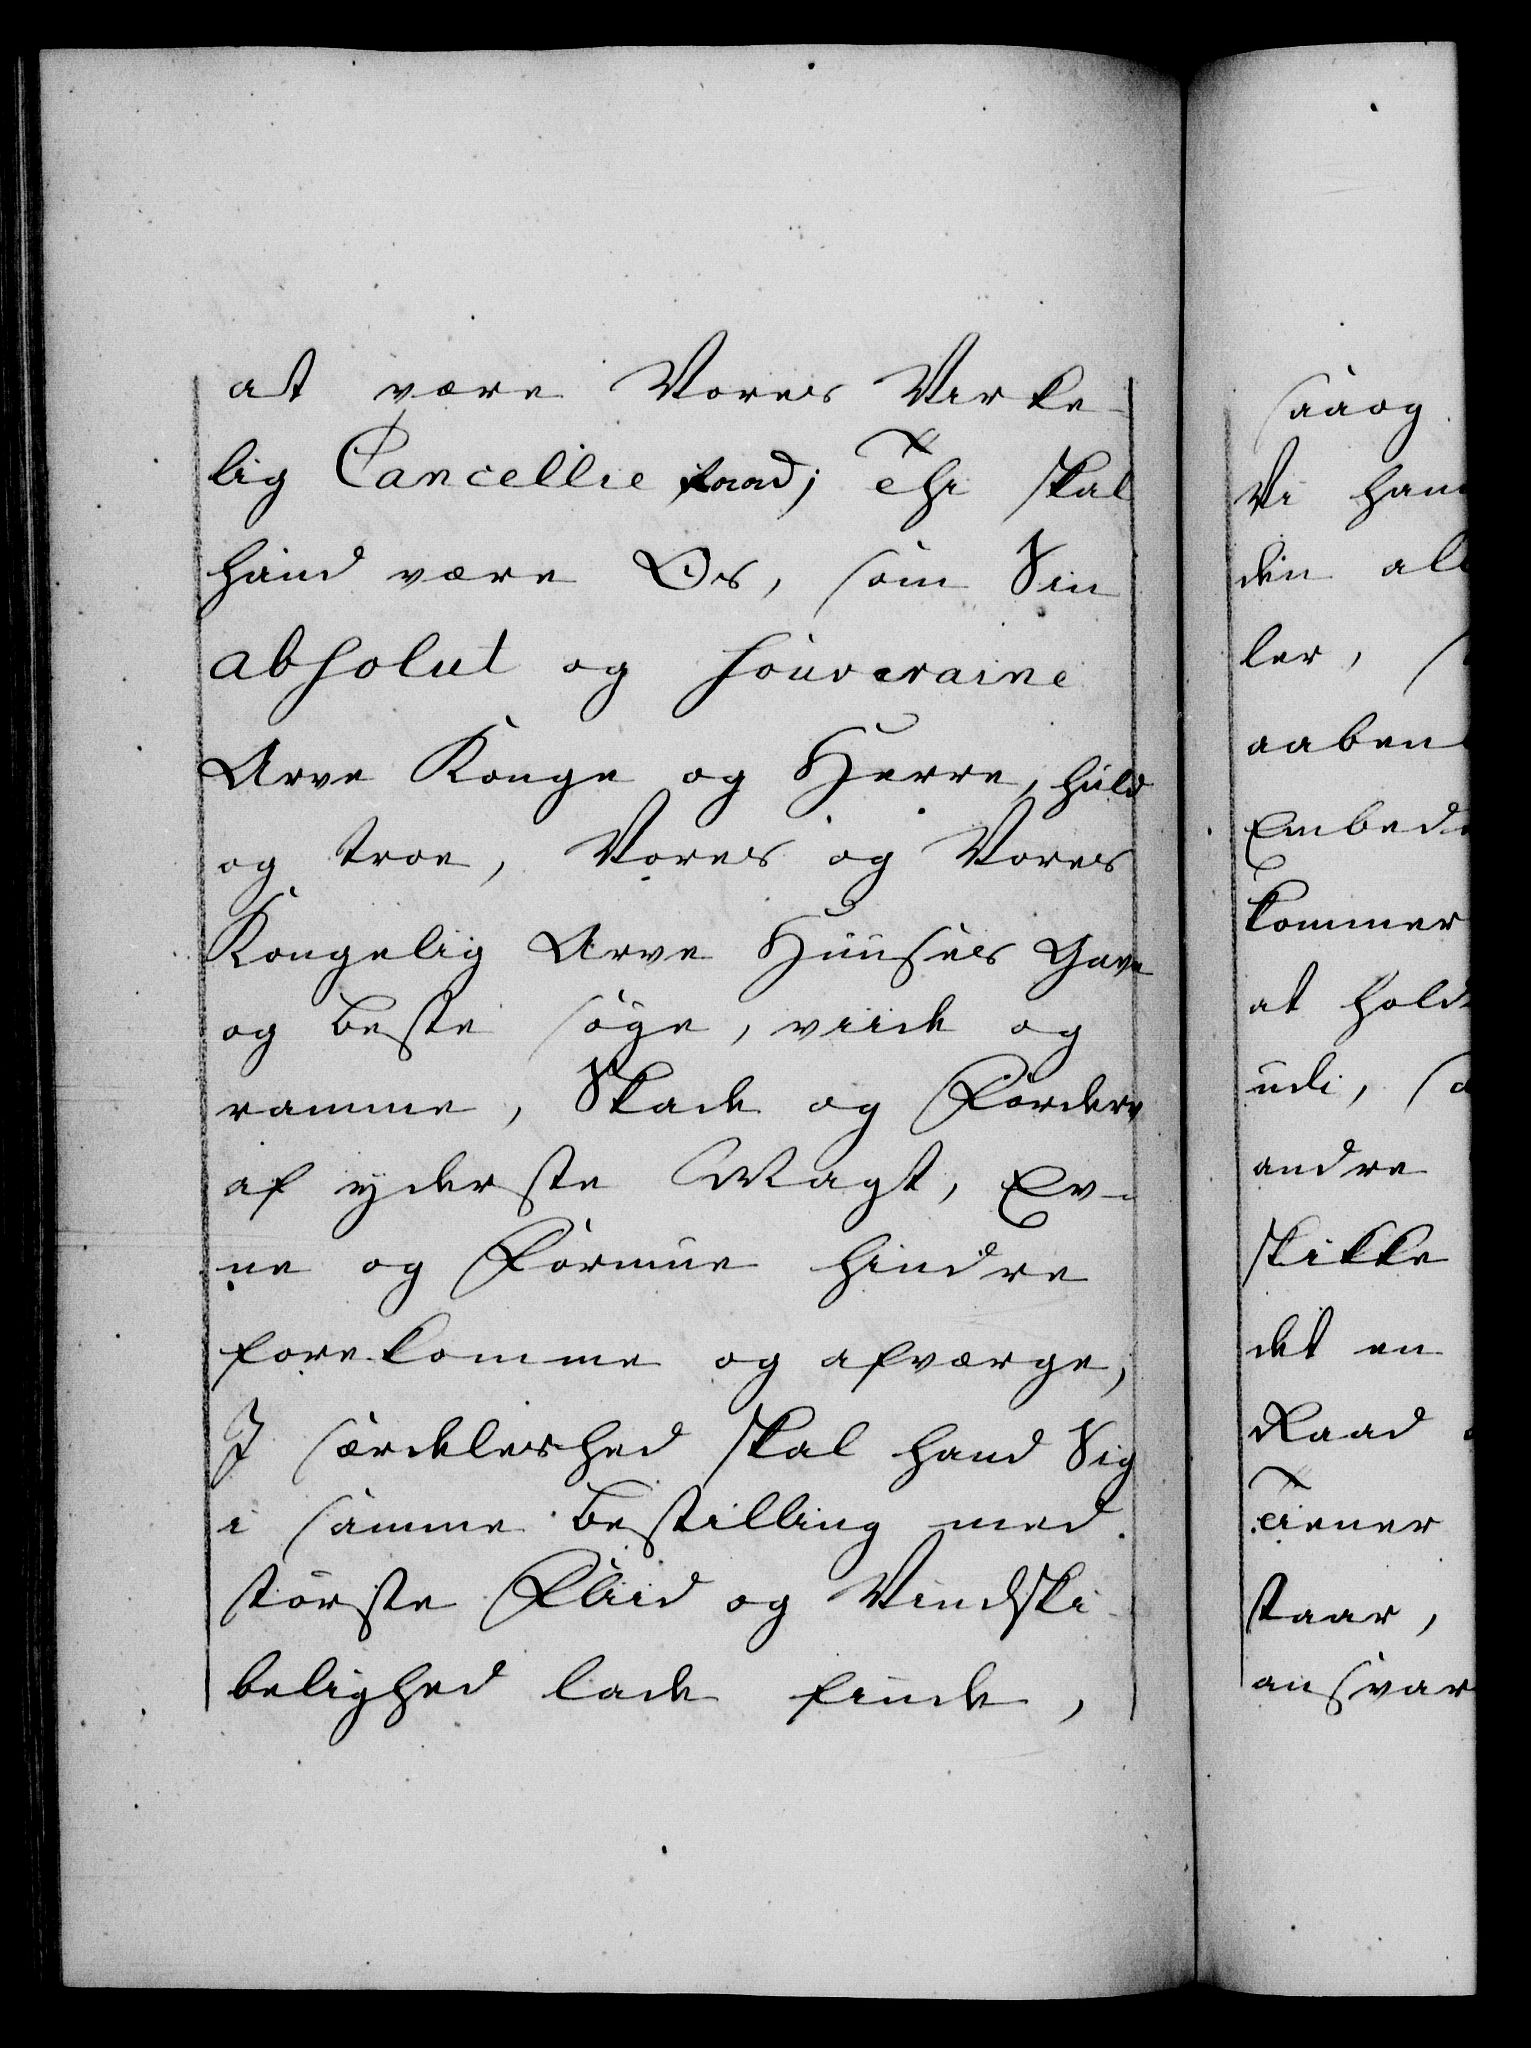 at være Vores Virke-
lig Cancellie Raad; Thi skal
hand være Os, som Sin
absolut og souveraine
Arve Konge og Herre, huld
og troe, Vores og Vores
Kongelig Arve Huuses Gavn
og beste søge, viide og
ramme, Skade og Forderv
af yderste Magt, Ev-
ne og Formue hindre
forekomme og afværge,
I særdeleshed skal hand Sig
i samme bestilling med
største Fliid og Vindski-
belighed lade finde,
saaog
Vi ham
den all
ler,
aaben
Embed
kommer
at hold
udi,
andre
skikke
det en
Raad
Tiener
staar,
ansvar